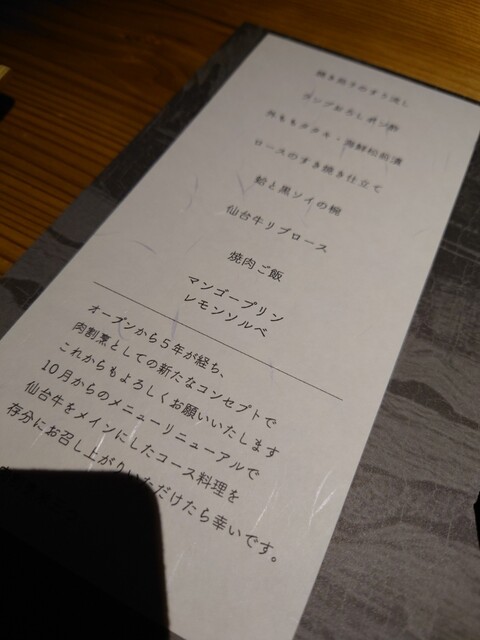 焼き茄子のすり流し
ランプおろしポン酢
外ももタタキ・海鮮松前漬
ロースのすき焼き仕立て
蛤と黒ソイの椀
仙台牛リブロース
焼肉ご飯
マンゴープリン
レモンソルベ
オープンから5年が経ち、
肉割烹としての新たなコンセプトで
これからもよろしくお願いいたします
10月からのメニューリニューアルで
仙台牛をメインにしたコース料理を
存分にお召し上がりいただけたら幸いです。